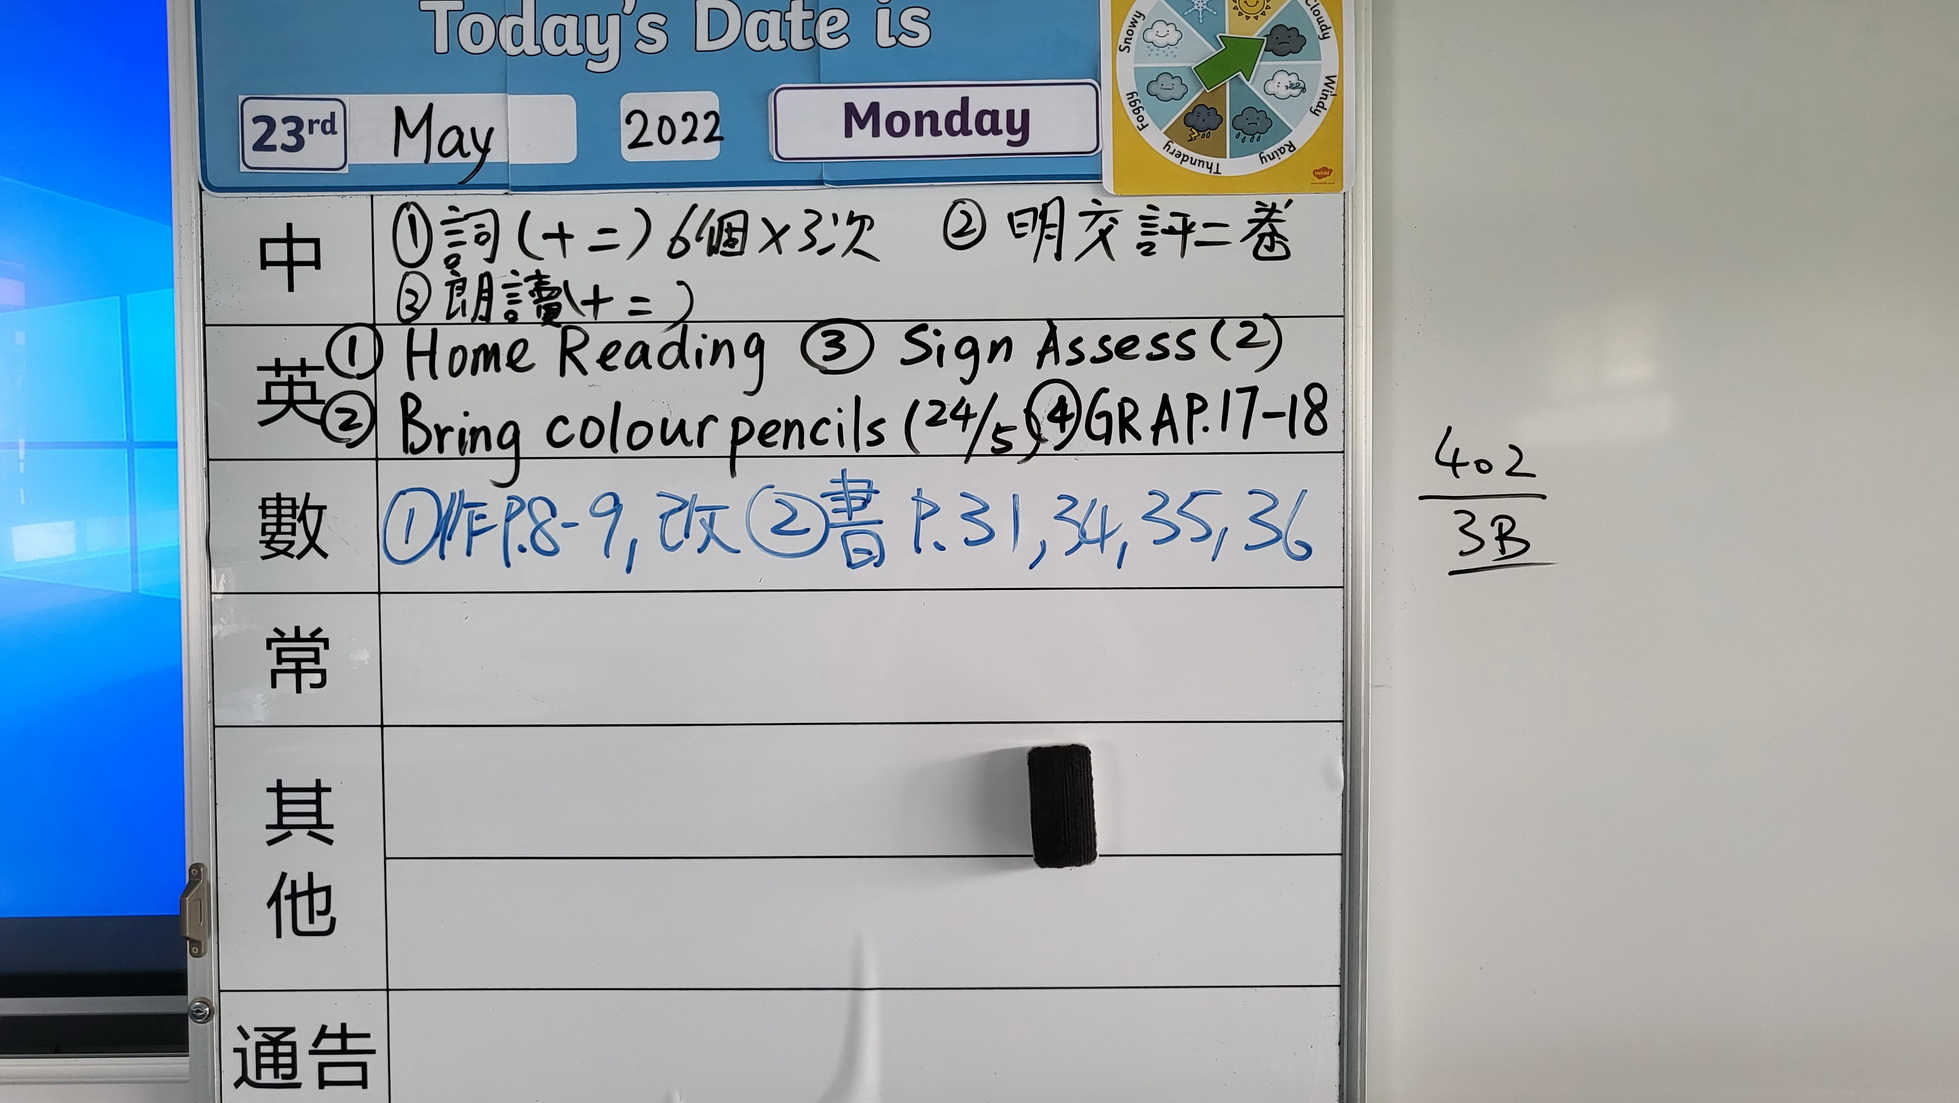 Today's Date is
23rd May 2022 Monday
Snowy
Cloudy
Windy
Rainy
Thundery
Foggy
中
①詞(十二)6個×3次 ②明交評二卷
③朗讀(十二)
英
① Home Reading ③ Sign Assess(2)
② Bring colour pencils (24/5) ④GRA P.17-18
數
①作P.8-9,改 ②書 P.31,34,35,36
常
其他
通告
402
3B